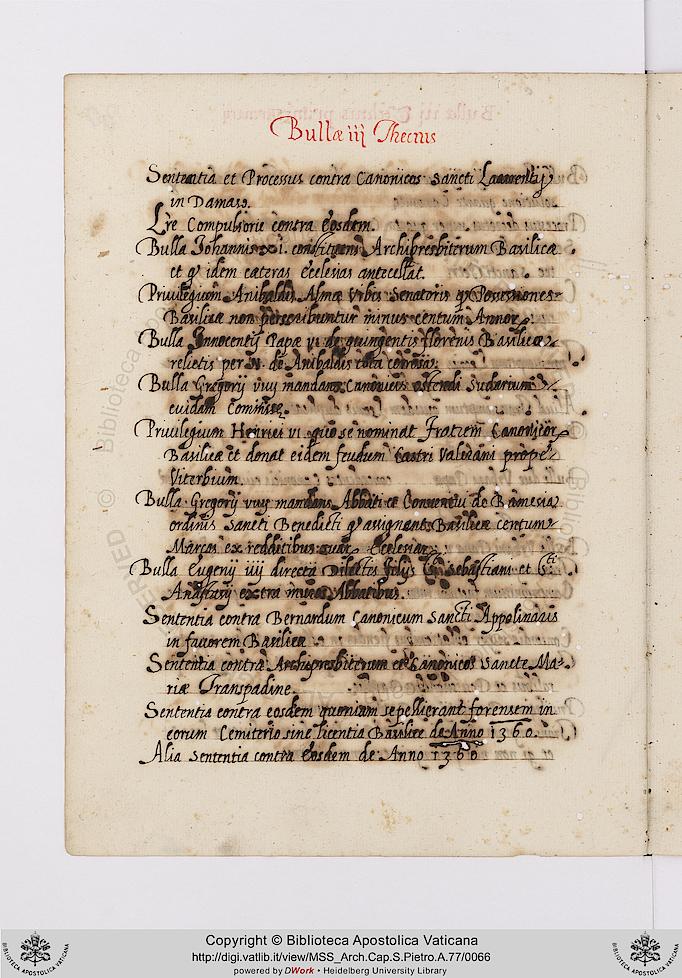 Bullæ iij Thecæ
Sententia et Processus contra Canonicos sancti Laurentij
in Damaso.
Lre Compulsorie contra Eosdem.
Bulla Johannis constituens Archipresbiterum Basilicæ
et q idem cæteras Ecclesias antecellat.
Privilegium Anibaldi Almæ Urbis Senatoris q Possessiones
Basilicæ non perscribuntur minus centum Annor.
Bulla Innocentij Papæ vi de quingentis florenis Basilicæ
relictis per N. de Anibaldis
Bulla Gregorij mandans Canonicis ostendi Sudarium
cuidam Comitisse
Privilegium Henrici vi quo se nominat Fratrem Canonicor
Basilicæ et donat eidem feudum Castri Valerani prope
Viterbium
Bulla Gregorij mandans Abbati et Conventui de
ordinis Sancti Benedicti q assignent Basilicæ centum
Marcas ex redditibus suar Ecclesiar
Bulla Eugenij iiij directa Dilectis filijs Sebastiani et Sti
Anastasij extra muros Abbatibus.
Sententia contra Bernardum Canonicum Sancti Appolinaris
in favorem Basilice
Sententia contra Archipresbiterum et Canonicos Sancte Ma-
riæ Transpadine
Sententia contra eosdem quoniam sepellierant forensem in
eorum Cemiterio sine licentia Basilice de Anno 1360.
Alia Sententia contra Eosdem de Anno 1360
Copyright © Biblioteca Apostolica Vaticana
http://digi.vatlib.it/view/MSS_Arch.Cap.S.Pietro.A.77/0066
powered by DWork • Heidelberg University Library